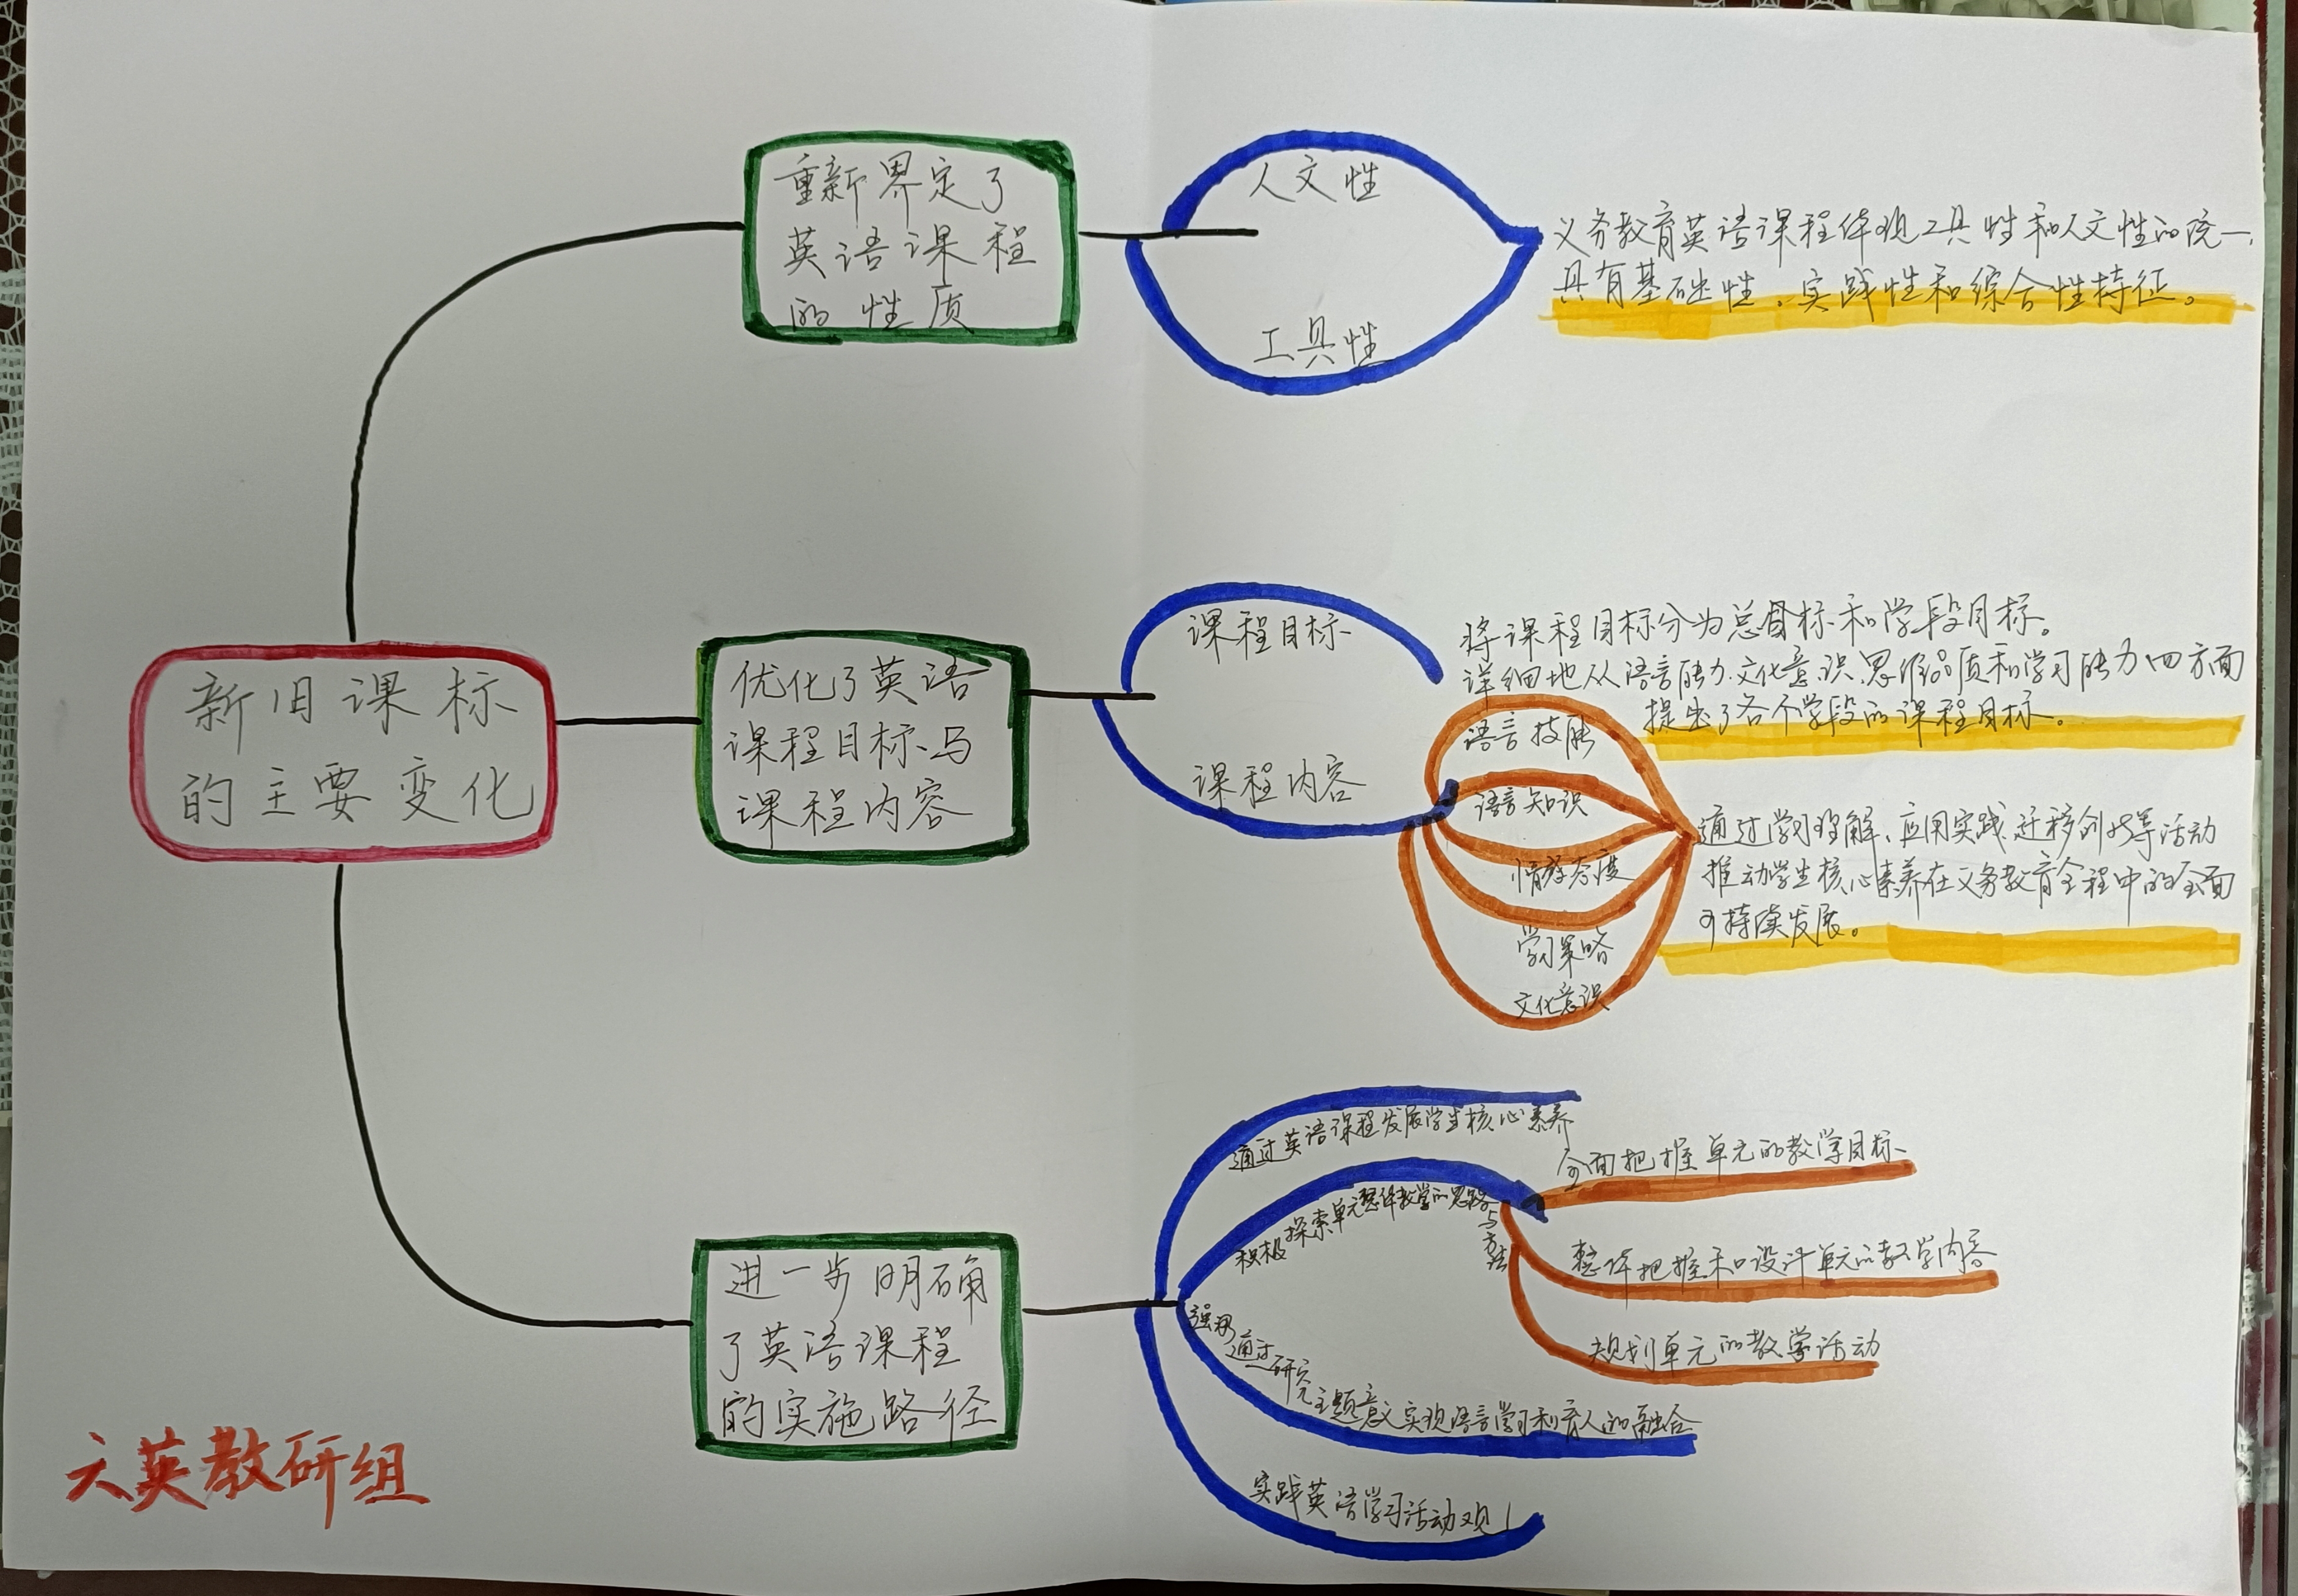 新旧课标
的主要变化
重新界定了
英语课程
的性质
人文性
工具性
义务教育英语课程体现工具性和人文性的统一,
具有基础性、实践性和综合性特征。
优化了英语
课程目标与
课程内容
课程目标
将课程目标分为总目标和学段目标。
详细地从语言能力、文化意识、思维品质和学习能力四方面
提出了各个学段的课程目标。
课程内容
语言技能
语言知识
情感态度
学习策略
文化意识
通过学习理解、应用实践、迁移创新等活动
推动学生核心素养在义务教育全程中的全面
可持续发展。
进一步明确
了英语课程
的实施路径
通过英语课程发展学生核心素养
积极探索单元整体教学的思路与方法
全面把握单元的教学目标
整体把握和设计单元的教学内容
规划单元的教学活动
强调通过研究主题意义实现语言学习和育人的融合
实践英语学习活动观
六英教研组